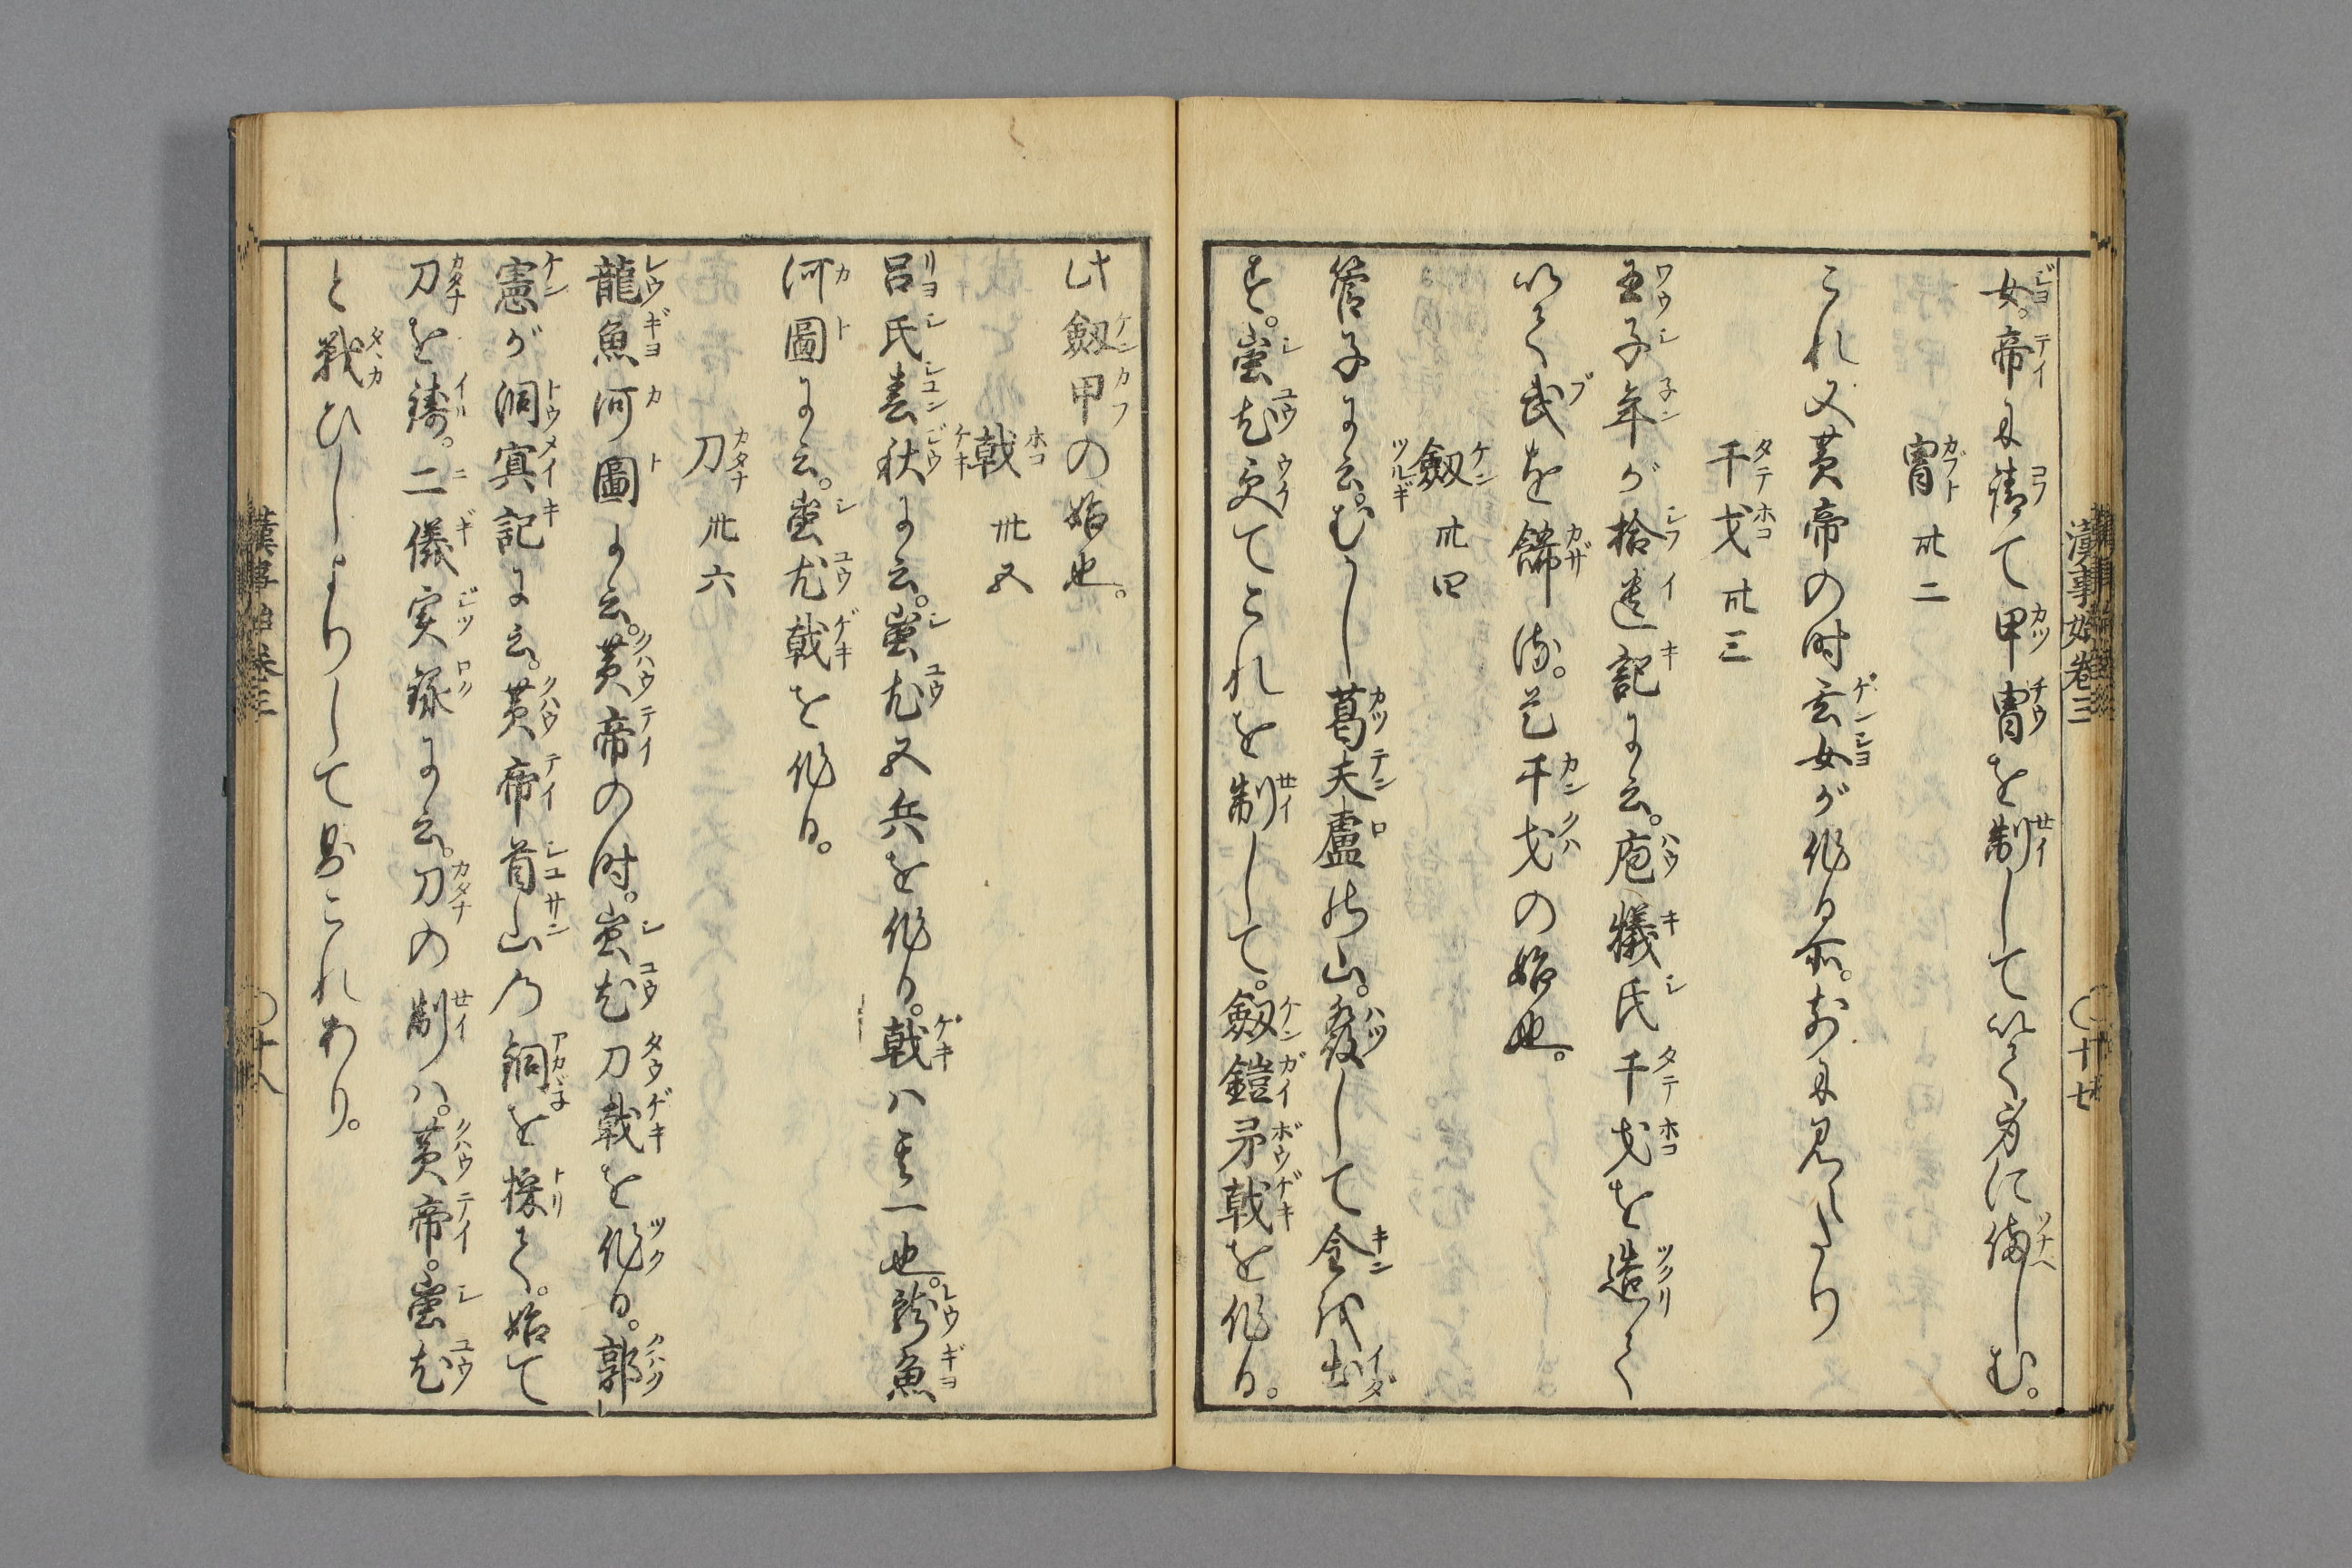 女。帝に請て甲冑を制して以て身に備しむ。
冑 卅二
これ又黄帝の时玄女が作る所。前に见へたり
干戈 卅三
王子年が拾遺記に云。庖犠氏干戈を造て
以て武を餝る。是干戈の始也。
劔 卅四
管子に云。むかし葛天盧の山。發して金を出
す。蚩尤受てこれを制して。劔鎧矛戟を作る。
漢事始卷三 〇十七
此劔甲の始也。
戟 卅五
吕氏春秋に云。蚩尤五兵を作る。戟ハ其一也。龍魚
河圖に云。蚩尤戟を作る。
刀 卅六
龍魚河圖に云。黄帝の时。蚩尤刀戟を作る。郭
憲が洞冥記に云。黄帝首山乃銅を採て。始て
刀を鋳。二儀実録に云。刀の制ハ。黄帝。蚩尤
と戦ひしよりして既これあり。
漢事始卷三 〇十八